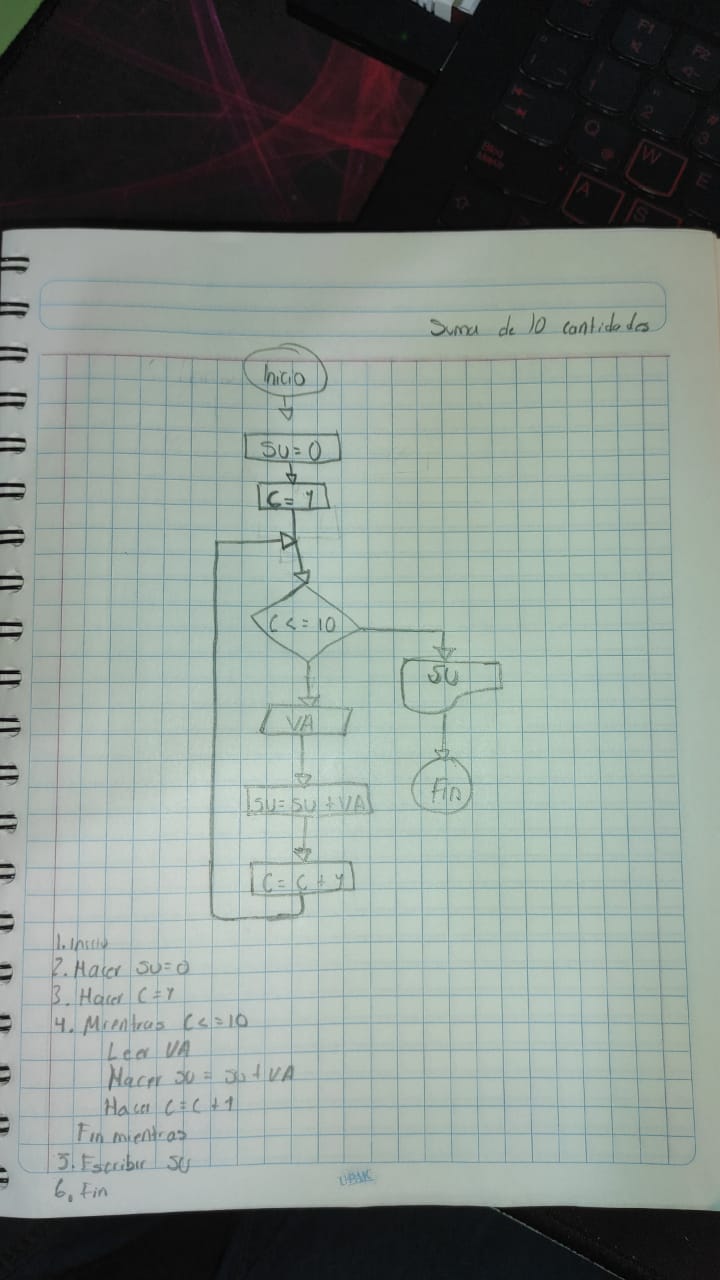 F1
F2
1
2
3
Q
W
E
Bloq
Mayús
A
S
Suma de 10 cantidades
Inicio
SU=0
C=1
C<=10
SU
VA
Fin
SU=SU+VA
C=C+1
1. Inicio
2. Hacer SU=0
3. Hacer C=1
4. Mientras C<=10
Leer VA
Hacer SU = SU+VA
Hacer C=C+1
Fin mientras
5. Escribir SU
6. Fin